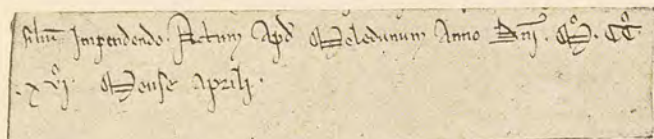 siliū Impendendo. Actum Apd̄ Meledunum Anno Dnī. Mͦ. CCͦ.
. xvͦi. Mense Aprili.